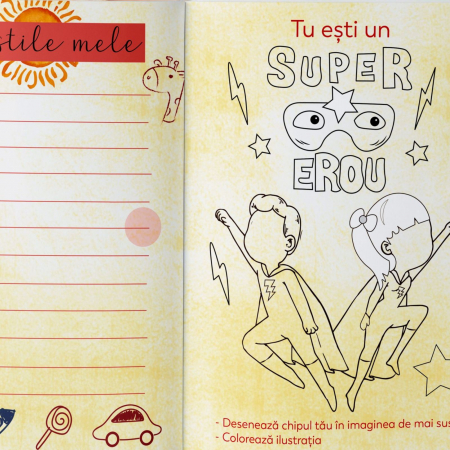 mele
Tu ești un
SUPER
EROU
- Desenează chipul tău în imaginea de mai sus
- Colorează ilustrația